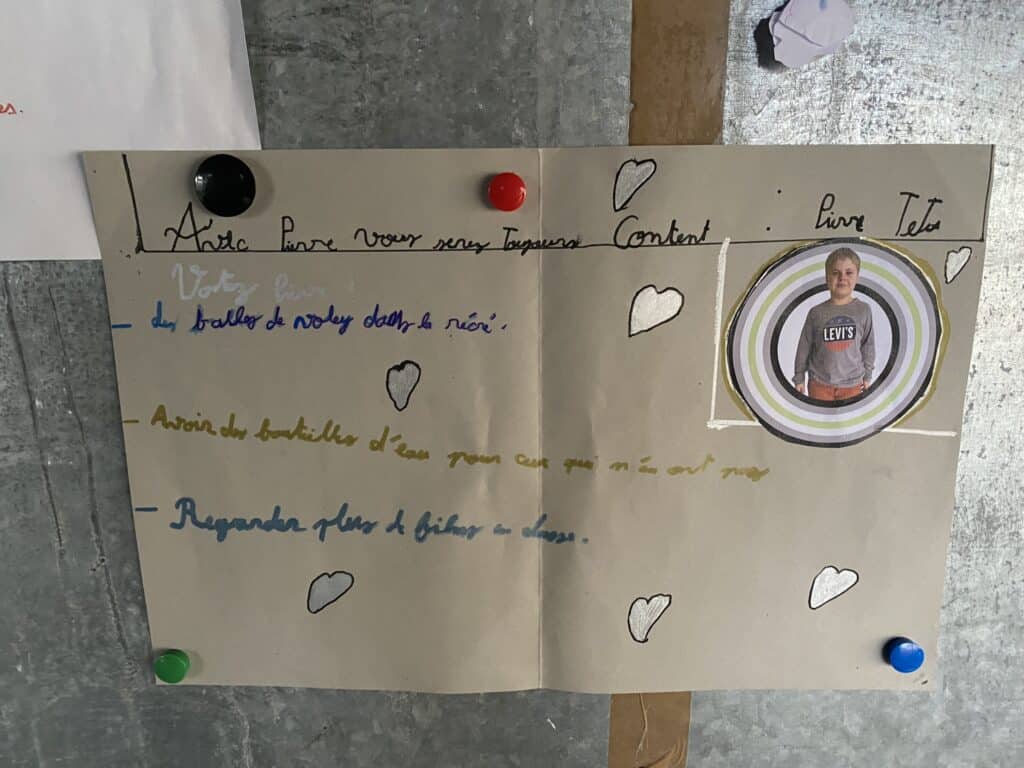 es.
Avec Pierre vous serez Toujours Content : Pierre Tetu
Votez
LEVI'S
- des balles de voley dans la récré.
- Avoir des bouteilles d'éau pour ceux qui n'én ont pas
- Regarder plus de films en classe.